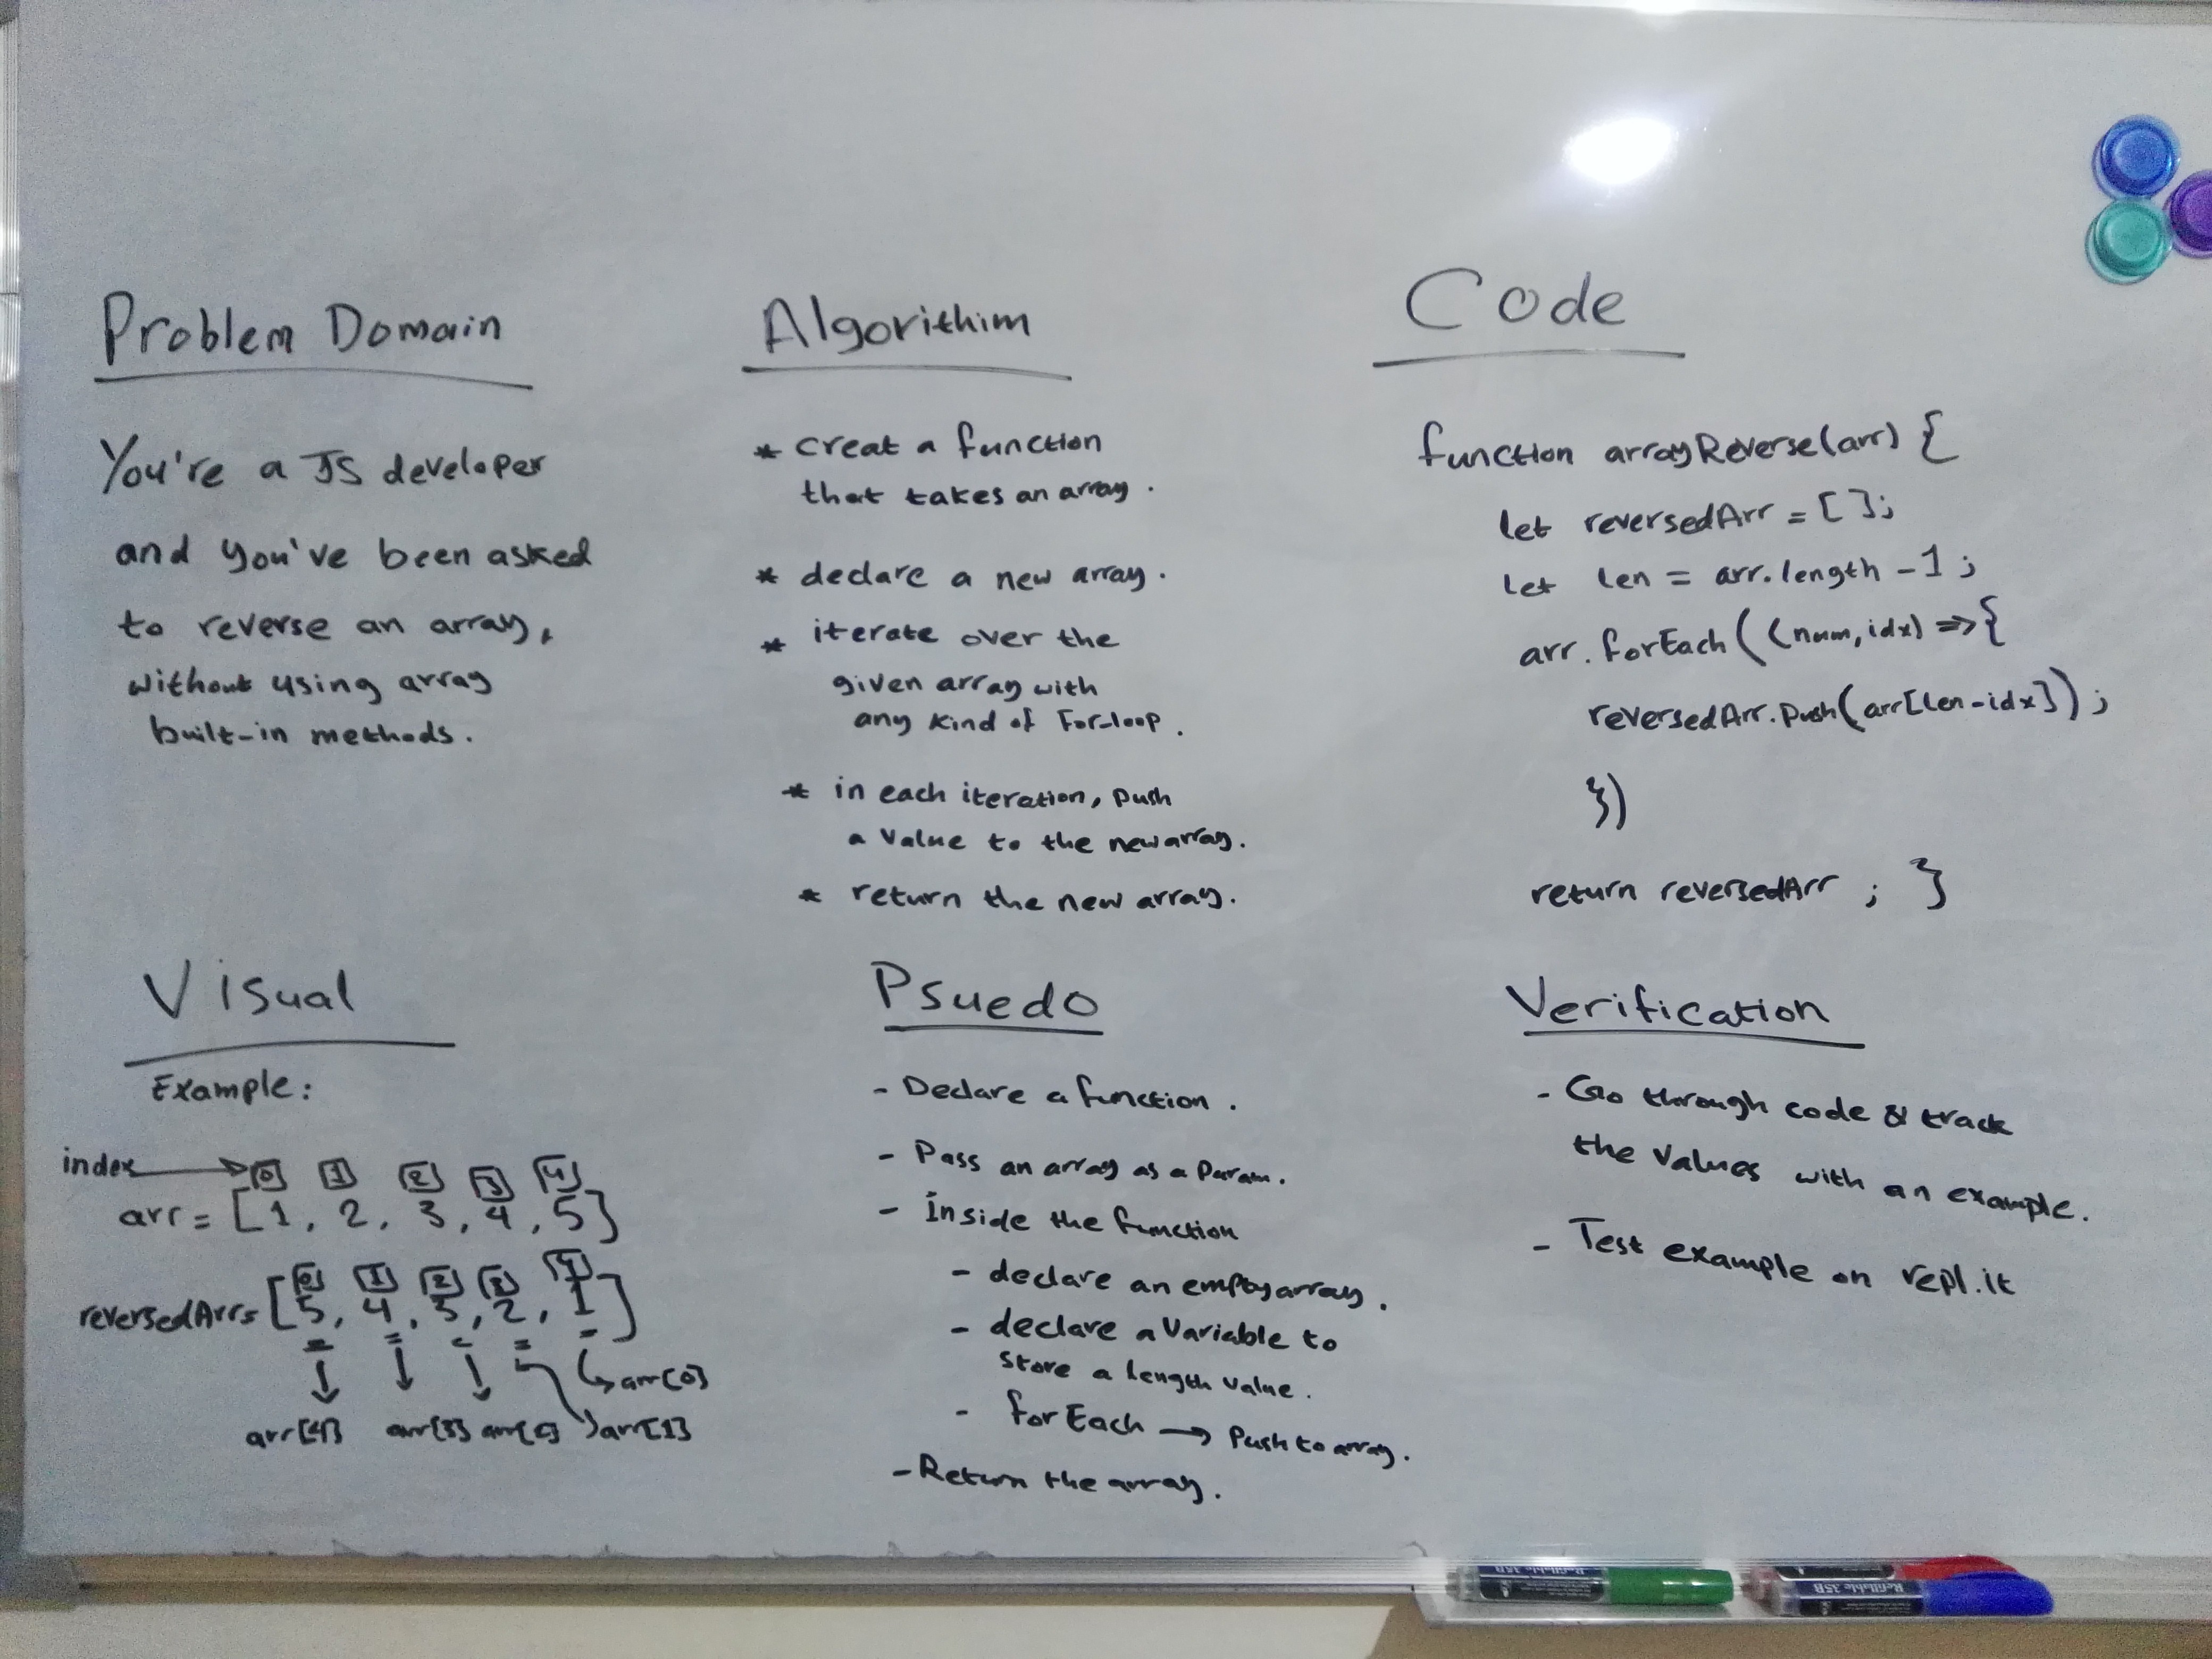 Problem Domain
You're a JS developer
and you've been asked
to reverse an array,
without using array
built-in methods.
Algorithim
* creat a function
that takes an array.
* declare a new array.
* iterate over the
given array with
any kind of For-loop.
* in each iteration, push
a value to the new array.
* return the new array.
Code
function arrayReverse(arr) {
let reversedArr = [ ];
let len = arr.length - 1 ;
arr.forEach((num, idx) => {
reversedArr.push(arr[len-idx]) ;
})
return reversedArr ; }
Visual
Example:
index 0 1 2 3 4
arr = [1, 2, 3, 4, 5]
0 1 2 3 4
reversedArr = [5, 4, 3, 2, 1]
arr[0]
arr[4] arr[3] arr[1]
Psuedo
- Declare a function.
- Pass an array as a Param.
- Inside the function
- declare an empty array.
- declare a Variable to
store a length value.
- forEach → Push to array.
- Return the array.
Verification
- Go through code & track
the values with an example.
- Test example on repl.it
Refillable 35B
Refillable 35B